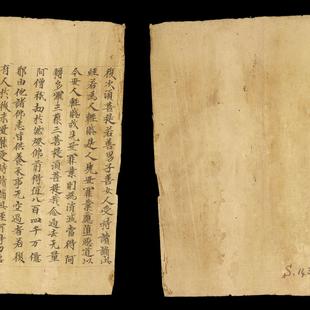 復次須菩提若善男子善女人受持讀誦此
經若為人輕賤是人先世罪業應墮惡道以
今世人輕賤故先世罪業則為消滅當得阿
耨多羅三藐三菩提須菩提我念過去無量
阿僧祇劫於然燈佛前得值八百四千万億
那由他諸佛悉皆供養承事无空過者若復
有人於後末世能受持讀誦此經所得功
S.